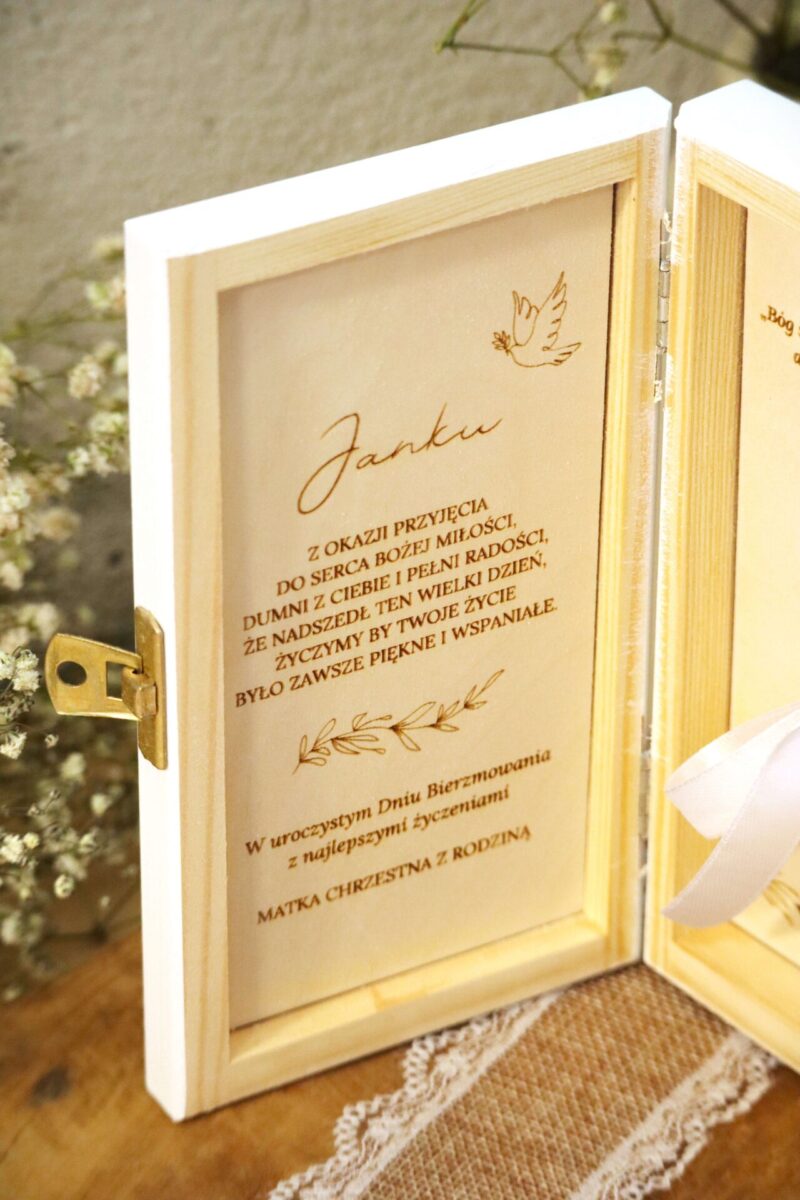 Janku
Z OKAZJI PRZYJĘCIA
DO SERCA BOŻEJ MIŁOŚCI,
DUMNI Z CIEBIE I PEŁNI RADOŚCI,
ŻE NADSZEDŁ TEN WIELKI DZIEŃ,
ŻYCZYMY BY TWOJE ŻYCIE
BYŁO ZAWSZE PIĘKNE I WSPANIAŁE.
W uroczystym Dniu Bierzmowania
z najlepszymi życzeniami
MATKA CHRZESTNA Z RODZINĄ
„Bóg